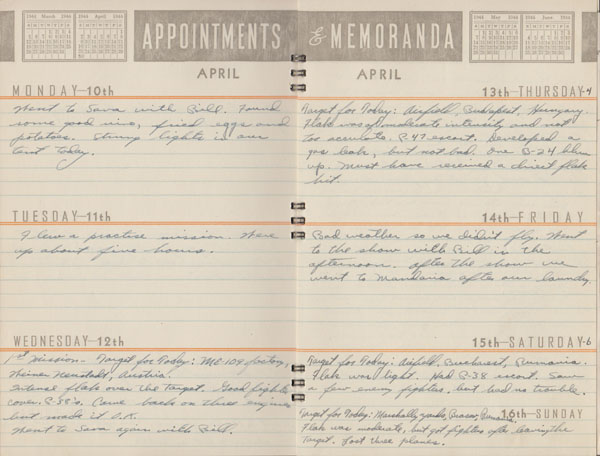 1944 March 1944
1944 April 1944
APPOINTMENTS & MEMORANDA
1944 May 1944
1944 June 1944
APRIL
APRIL
MONDAY—10th
Went to Sava with Bill. Found
some good wine, fried eggs and
potatoes. Strung lights in our
tent today.
TUESDAY—11th
I flew a practice mission. Were
up about five hours.
WEDNESDAY—12th
1st mission - Target for Today: ME 109 factory,
Weiner Neustadt, Austria.
Intense flak over the Target. Good fighter
cover P-38's. Came back on three engines
but made it O.K.
Went to Sava again with Bill.
13th—THURSDAY-4
Target for Today: Airfield, Budapest, Hungary.
Flak was of moderate intensity and not
too accurate. P-47 escort. Developed a
gas leak, but not bad. One B-24 blew
up. Must have received a direct flak
hit.
14th—FRIDAY
Bad weather so we didn't fly. Went
to the show with Bill in the
afternoon. After the show we
went to Manduria after our laundry.
15th—SATURDAY-6
Target for Today: Airfield, Bucharest, Rumania.
Flak was light. Had P-38 escort. Saw
a few enemy fighters, but had no trouble.
16th—SUNDAY
Target for Today: Marshally yards, Brasov, Rumania.
Flak was moderate, but got fighters after leaving the
Target. Lost three planes.